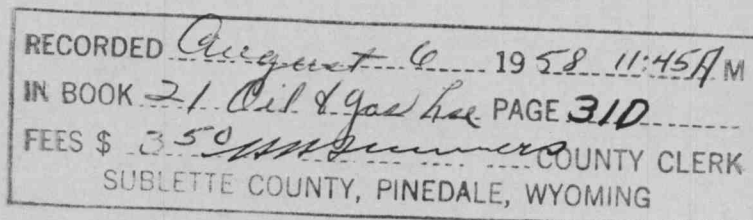 RECORDED August 6 1958 11:45 A M
IN BOOK 21 Oil & Gas Lse PAGE 310
FEES $ 3.50 COUNTY CLERK
SUBLETTE COUNTY, PINEDALE, WYOMING